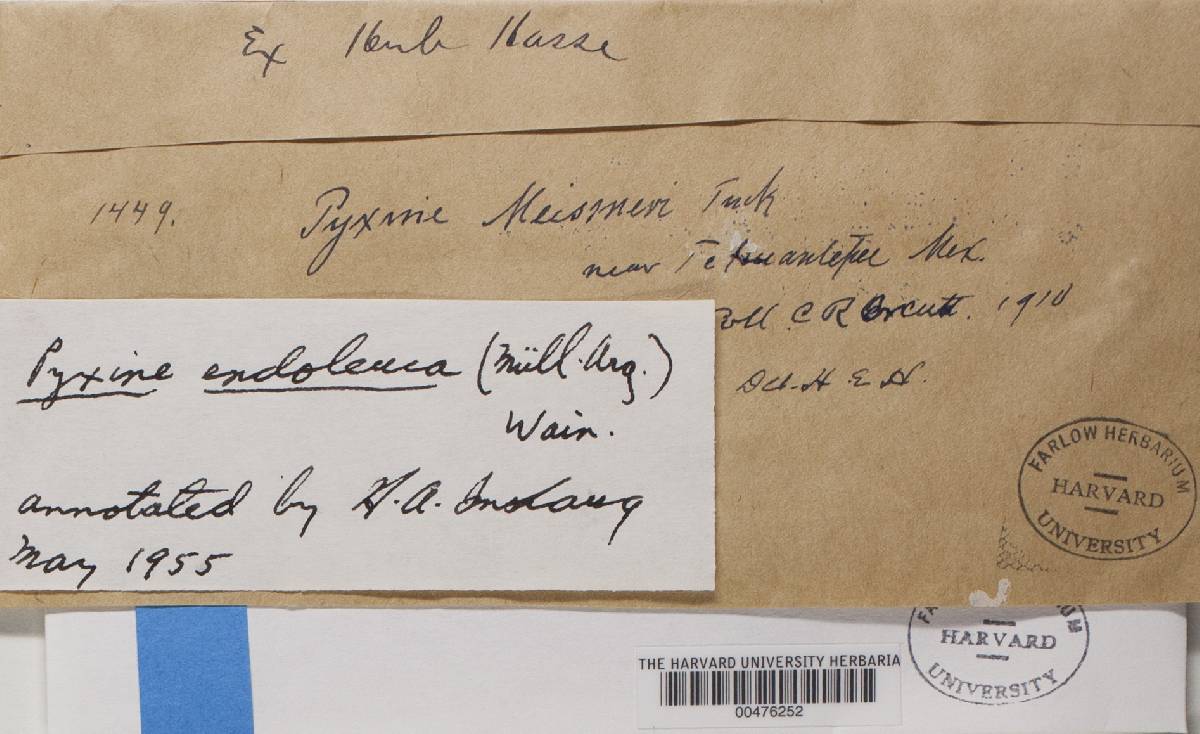 Ex Herb Hasse
1449. Pyxine Meissneri Tuck
near Tehuantepec Mex.
Coll. C R Orcutt. 1910
Det. H. E. H.
Pyxine endoleuca (Müll. Arg.)
Wain.
annotated by H. A. Imshaug
May 1955
FARLOW HERBARIUM
HARVARD
UNIVERSITY
HARVARD
UNIVERSITY
THE HARVARD UNIVERSITY HERBARIA
00476252